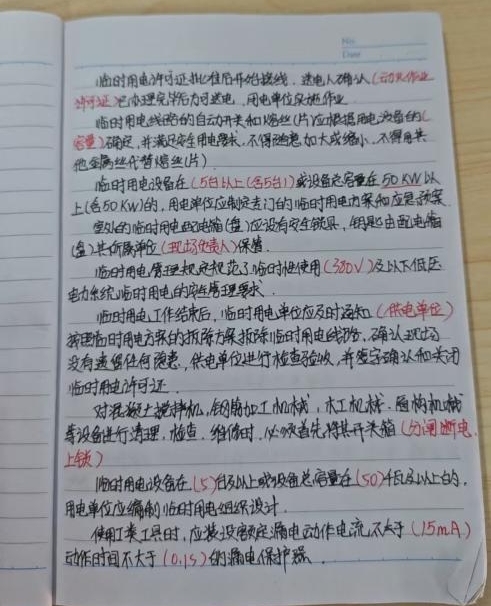 No
Date
临时用电许可证批准后开始接线，送电人确认（动火作业
许可证）已办理完毕后方可送电，用电单位实施作业．
临时用电线路的自动开关和熔丝（片）应根据用电设备的（
容量）确定，并满足安全用电要求，不得随意加大或缩小，不得用其
他金属丝代替熔丝（片）．
临时用电设备在（5台以上（含5台））或设备总容量在50KW以
上（含50KW）的，用电单位应制定专门的临时用电方案和应急预案．
室外的临时用电配电箱（盘）应设有安全锁具，钥匙由配电箱
（盘）其所属单位（现场负责人）保管．
临时用电管理规定规范了临时性使用（380V）及以下低压
电力系统临时用电的安全管理要求．
临时用电工作结束后，临时用电单位应及时通知（供电单位）
按照临时用电方案的拆除方案拆除临时用电线路，确认现场
没有遗留任何隐患，供电单位进行检查验收，并签字确认和关闭
临时用电许可证．
对混凝土搅拌机，钢筋加工机械，木工机械．盾构机械
等设备进行清理．检查．维修时，必须首先将其开关箱（分闸断电．
上锁）
临时用电设备在（5）台及以上或设备总容量在（50）千瓦及以上的，
用电单位应编制临时用电组织设计．
使用I类工具时，应装设额定漏电动作电流不大于（15mA）
动作时间不大于（0.1S）的漏电保护器．